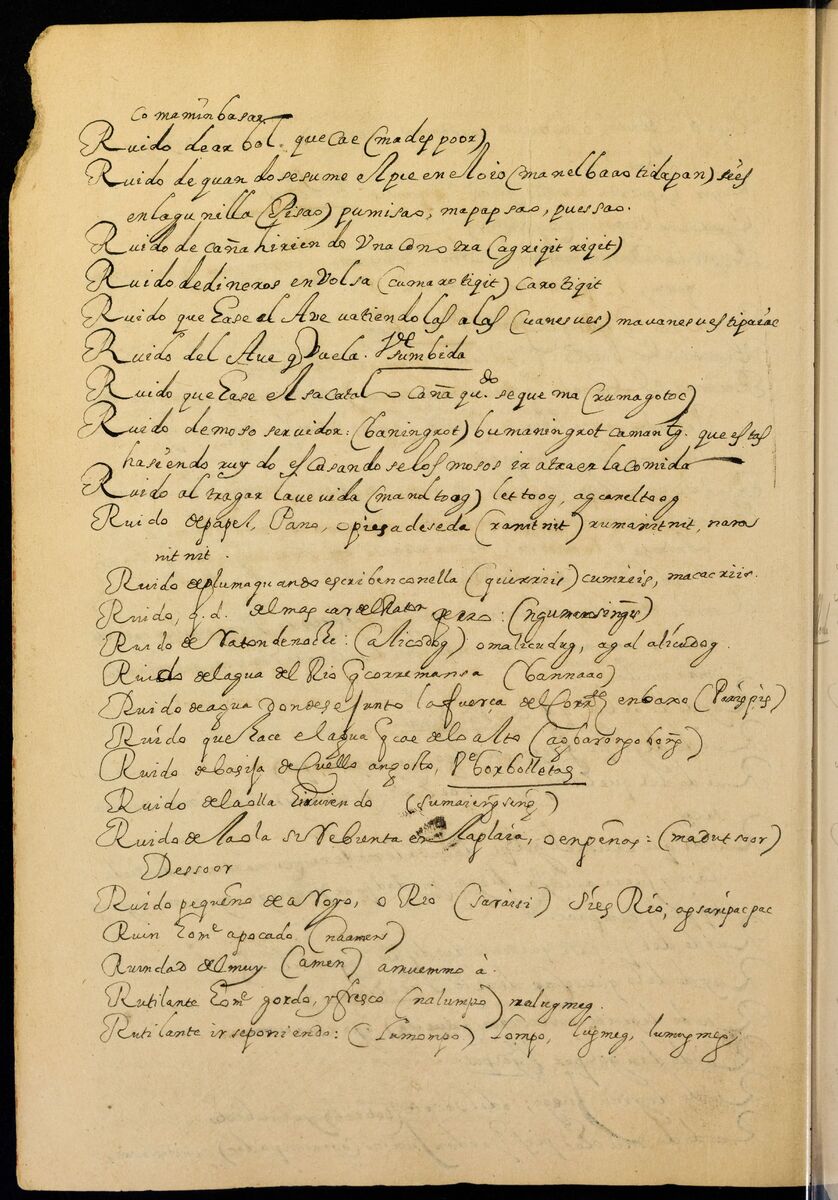 Co maminbasar
Ruido dearbol. que cae (madeppoor)
Ruido de quando sesume el pie en el oio (manelbaao tidapan) si es
en lagunilla (Episao) pumisao, mapapsao, puessao.
Ruido de caña hiriendo Vna con otra (agriqit riqit)
Ruido dedineros en Volsa (cumarotigit) carotigit
Ruido que Ease el Ave vatiendo las alas (vanesves) mavanesves tipaiac
Ruido del Ave q Vuela. Vde sumbida
Ruido que Ease el sacatal o caña qu.do se quema (rumagotoc)
Ruido demoso servidor: (baningrot) bumaningrot camantg. que estas
hasiendo ruydo escusandose los mosos ir atraer la comida
Ruido al tragar lavevida (mandtoog) lettoog, agcareltoog
Ruido depapel, Pano, opiesa deseda (ranitnit) rumanitnit, naras
nitnit.
Ruido deplumaquando escriben conella (quirriiis) cumiriis, macacriis.
Ruido, q. d. del mascar del Raton perro: (ngumarosingis)
Ruido de Raton denoche: (alicodog) omalicudug, agalalicudog.
Ruido delagua del Rio q corremansa (bannaao)
Ruido deagua donde se junto la fuerça del Corr.te en baxo (Parispis)
Ruido que hace el agua q cae de lo alto (agbarongobong)
Ruido de basija de Cuello angosto, Ve borbolletas
Ruido de la olla Eirviendo (sumaiengseng)
Ruido de la ola si Rebienta en la plaia, o en peñas: (madutsoor)
Dessoor
Ruido pequeño de aRoyo, o Rio (saraisi) si es Rio, agsaripacpac
Ruin Eom.e apocado (naamens)
Ruindad del muy (amen) amuemmo à.
Rutilante Eom.e gordo, y fresco (nalumpo) nalugmeg.
Rutilante ir seponiendo: (Lumompo) Lompo, lugmeg, lumugmeg,